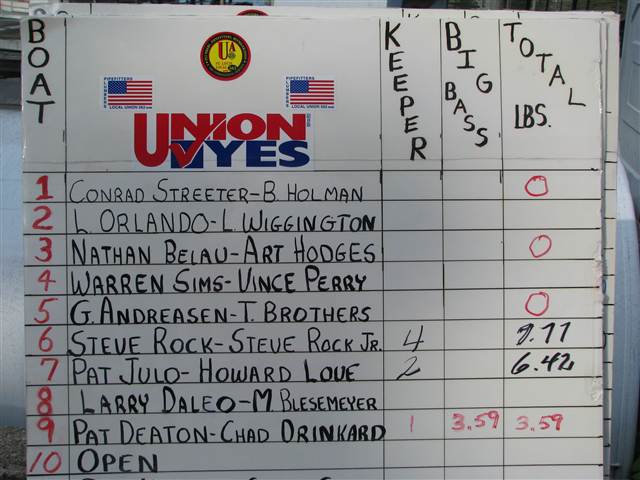 BOAT KEEPER BIG BASS TOTAL LBS.
UA
PIPEFITTERS PIPEFITTERS
PLUMBERS PLUMBERS
LOCAL UNION 562 LOCAL UNION 562
UNION YES
1 CONRAD STREETER-B. HOLMAN O
2 L. ORLANDO-L. WIGGINGTON
3 NATHAN BELAU-ART HODGES O
4 WARREN SIMS-VINCE PERRY
5 G. ANDREASEN-T. BROTHERS O
6 STEVE ROCK-STEVE ROCK JR. 4 9.77
7 PAT JULO-HOWARD LOVE 2 6.42
8 LARRY DALEO-M. BLESEMEYER
9 PAT DEATON-CHAD DRINKARD 1 3.59 3.59
10 OPEN